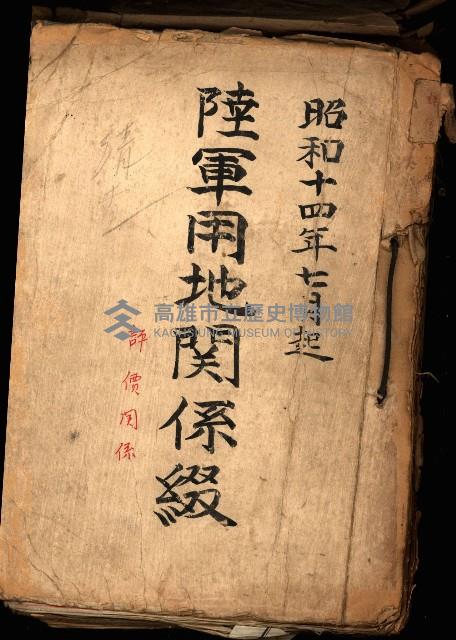 昭和十四年七月起
陸軍用地関係綴
評價関係
高雄市立歷史博物館
KAOHSIUNG MUSEUM OF HISTORY